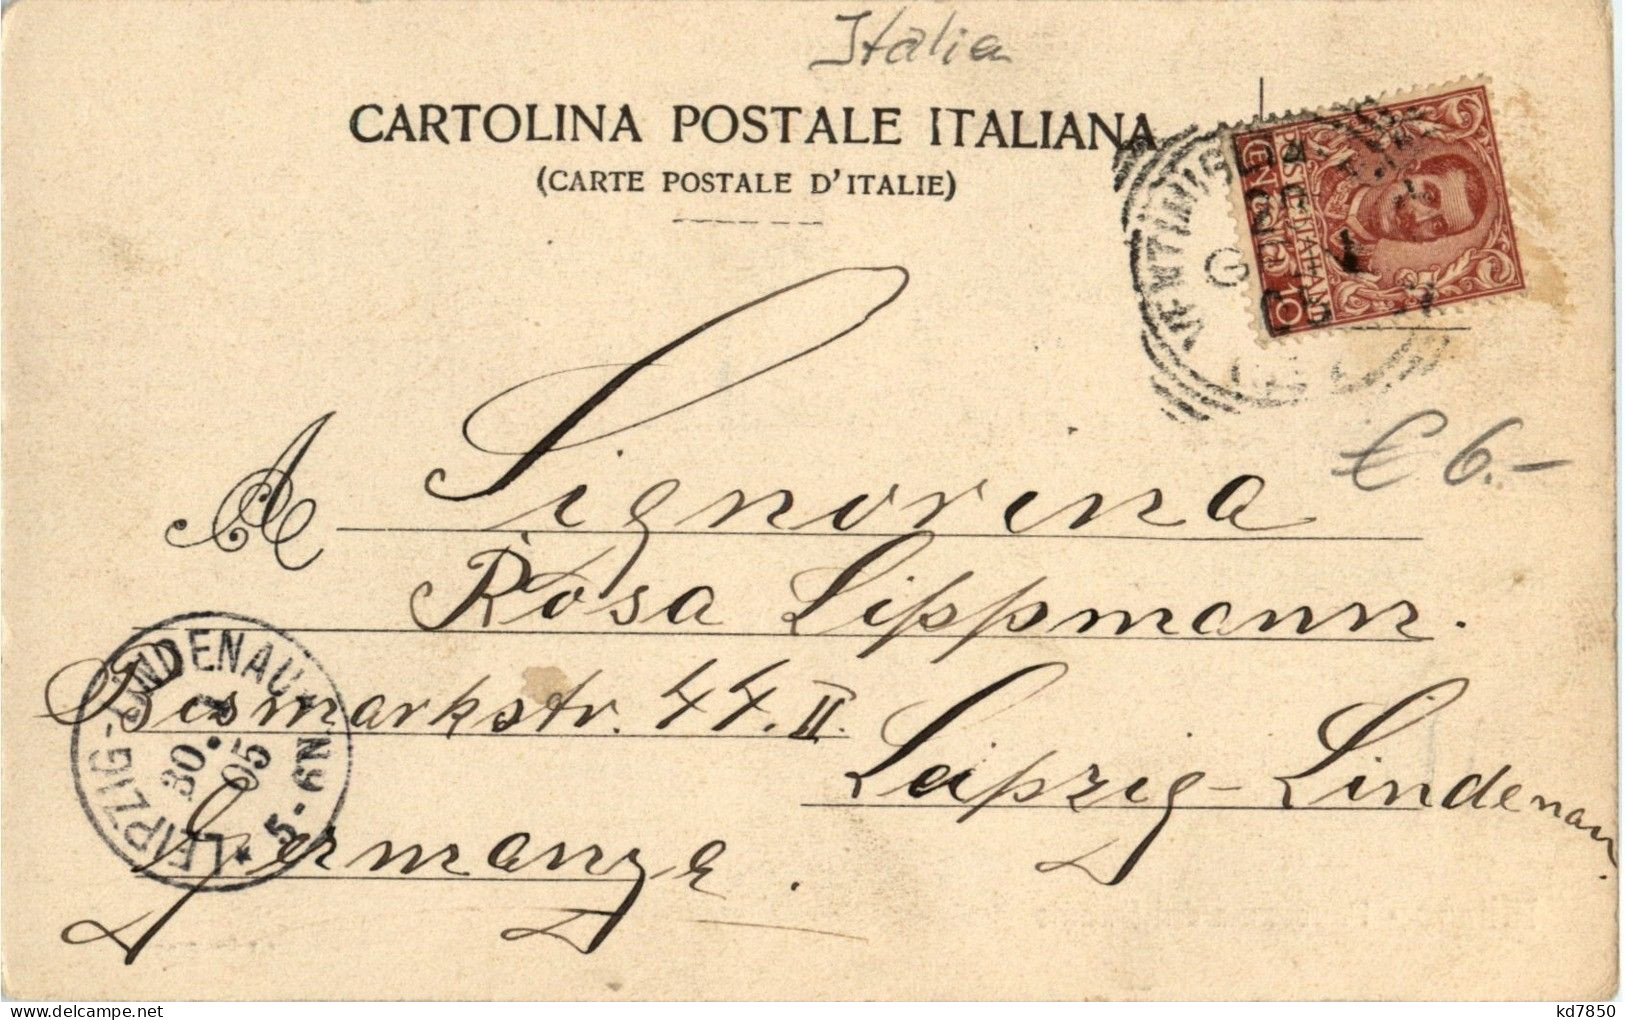 Italia
CARTOLINA POSTALE ITALIANA
(CARTE POSTALE D'ITALIE)
CENT. 10
€ 6.-
A Signorina
Rosa Lippmann.
Bismarkstr. 44. II.
Leipzig-Lindenau.
Germanza.
LEIPZIG-LINDENAU
30.
05
5-6N
kd7850